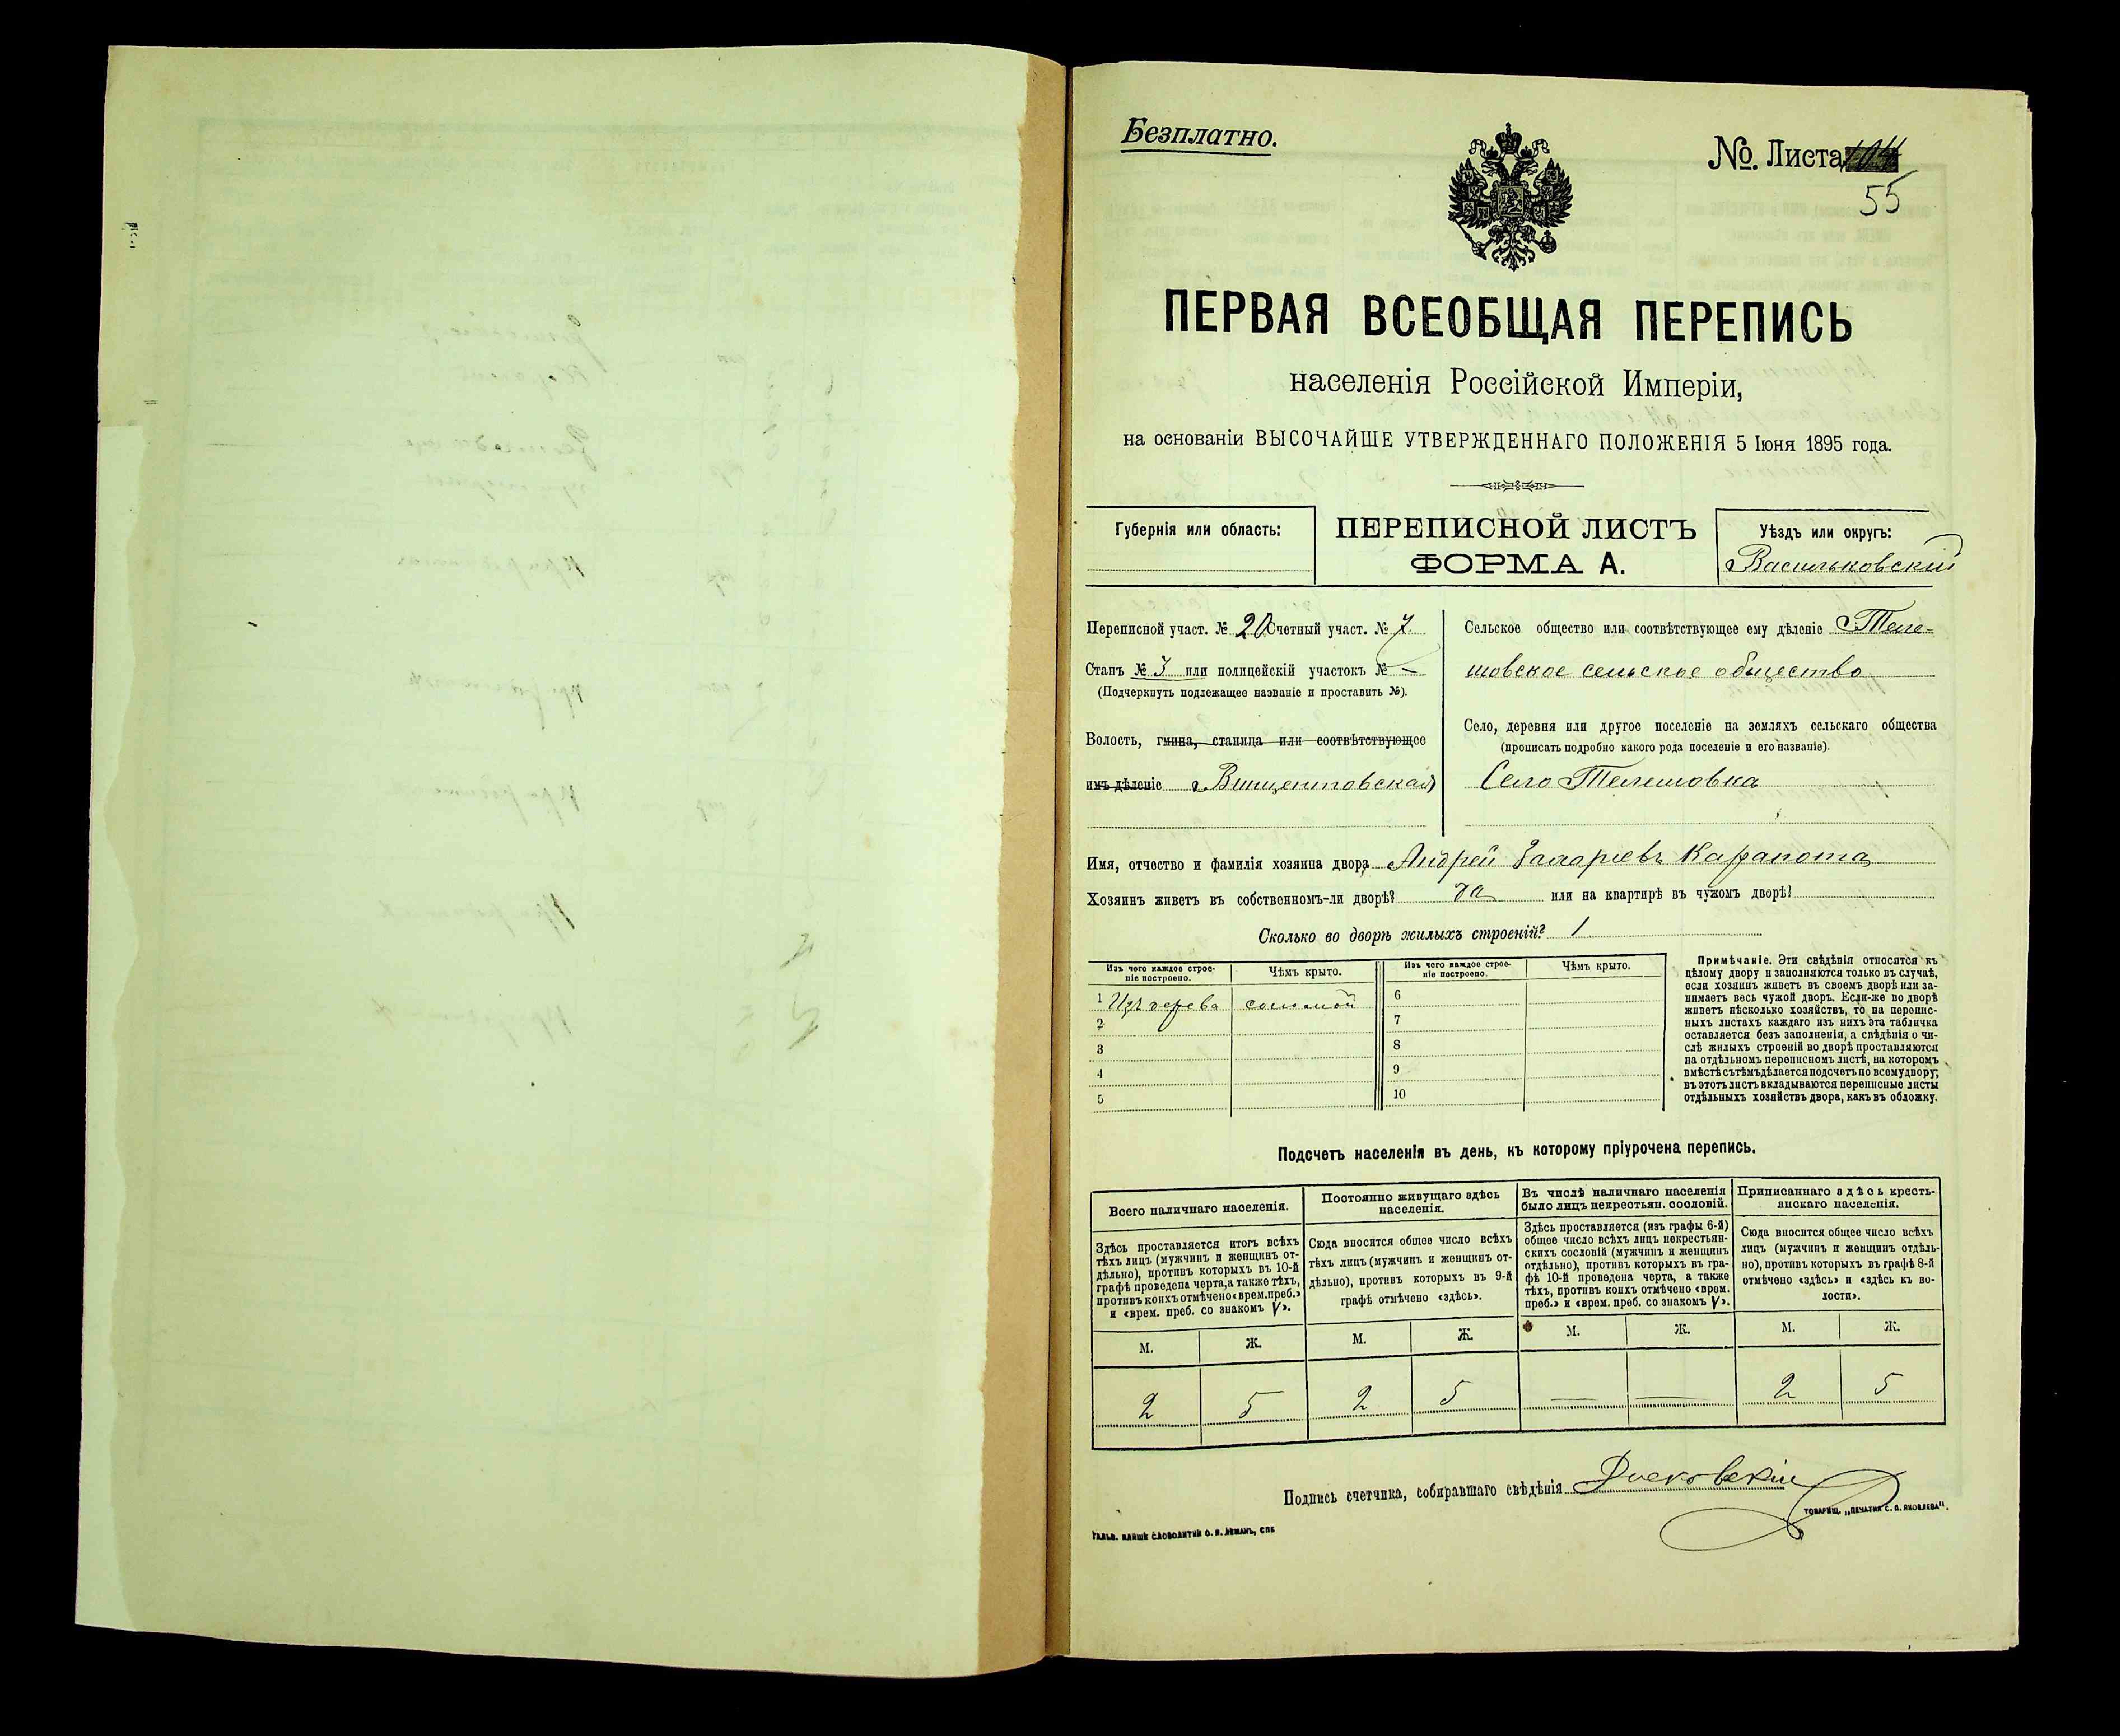 Безплатно.
№ Листа
55
ПЕРВАЯ ВСЕОБЩАЯ ПЕРЕПИСЬ
населенія Россійской Имперіи,
на основаніи ВЫСОЧАЙШЕ УТВЕРЖДЕННАГО ПОЛОЖЕНІЯ 5 Іюня 1895 года.
Губернія или область:
ПЕРЕПИСНОЙ ЛИСТЪ
ФОРМА А.
Уѣздъ или округъ:
Васильковскій
Переписной участ. № 20 Счетный участ. № 7
Станъ № 3 или полицейскій участокъ № —
(Подчеркнуть подлежащее названіе и проставить №).
Волость, гмина, станица или соотвѣтствующее
имъ дѣленіе Винцентовская
Сельское общество или соотвѣтствующее ему дѣленіе Теле-
шовское сельское общество
Село, деревня или другое поселеніе на земляхъ сельскаго общества
(прописать подробно какого рода поселеніе и его названіе).
Село Телешовка
Имя, отчество и фамилія хозяина двора Андрей Захаріевъ
Хозяинъ живетъ въ собственномъ-ли дворѣ? да или на квартирѣ въ чужомъ дворѣ?
Сколько во дворѣ жилыхъ строеній? 1
Изъ чего каждое строе-
ніе построено.
Чѣмъ крыто.
Изъ чего каждое строе-
ніе построено.
Чѣмъ крыто.
1 Изъ дерева соломой
2
3
4
5
6
7
8
9
10
Примѣчаніе. Эти свѣдѣнія относятся къ
цѣлому двору и заполняются только въ случаѣ,
если хозяинъ живетъ въ своемъ дворѣ или за-
нимаетъ весь чужой дворъ. Если-же во дворѣ
живетъ нѣсколько хозяйствъ, то на перепис-
ныхъ листахъ каждаго изъ нихъ эта табличка
оставляется безъ заполненія, а свѣдѣнія о чи-
слѣ жилыхъ строеній во дворѣ проставляются
на отдѣльномъ переписномъ листѣ, на которомъ
вмѣстѣ съ тѣмъ дѣлается подсчетъ по всему двору;
въ этотъ листъ вкладываются переписные листы
отдѣльныхъ хозяйствъ двора, какъ въ обложку.
Подсчетъ населенія въ день, къ которому пріурочена перепись.
Всего наличнаго населенія.
Здѣсь проставляется итогъ всѣхъ
тѣхъ лицъ (мужчинъ и женщинъ от-
дѣльно), противъ которыхъ въ 10-й
графѣ проведена черта, а также тѣхъ,
противъ коихъ отмѣчено «врем. преб.»
и «врем. преб. со знакомъ V».
М. Ж.
2 5
Постоянно живущаго здѣсь
населенія.
Сюда вносится общее число всѣхъ
тѣхъ лицъ (мужчинъ и женщинъ от-
дѣльно), противъ которыхъ въ 9-й
графѣ отмѣчено «здѣсь».
М. Ж.
2 5
Въ числѣ наличнаго населенія
было лицъ некрестьян. сословій.
Здѣсь проставляется (изъ графы 6-й)
общее число всѣхъ лицъ некрестьян-
скихъ сословій (мужчинъ и женщинъ
отдѣльно), противъ которыхъ въ гра-
фѣ 10-й проведена черта, а также
тѣхъ, противъ коихъ отмѣчено «врем.
преб.» и «врем. преб. со знакомъ V».
М. Ж.
— —
Приписаннаго здѣсь кресть-
янскаго населенія.
Сюда вносится общее число всѣхъ
лицъ (мужчинъ и женщинъ отдѣль-
но), противъ которыхъ въ графѣ 8-й
отмѣчено «здѣсь» и «здѣсь къ во-
лости».
М. Ж.
2 5
Подпись счетчика, собиравшаго свѣдѣнія
ТОВАРИЩ. „ПЕЧАТНЯ С. П. ЯКОВЛЕВА".
ГАЛЬВ. КЛИШЕ СЛОВОЛИТНИ О. И. ЛЕМАНЪ, СПБ